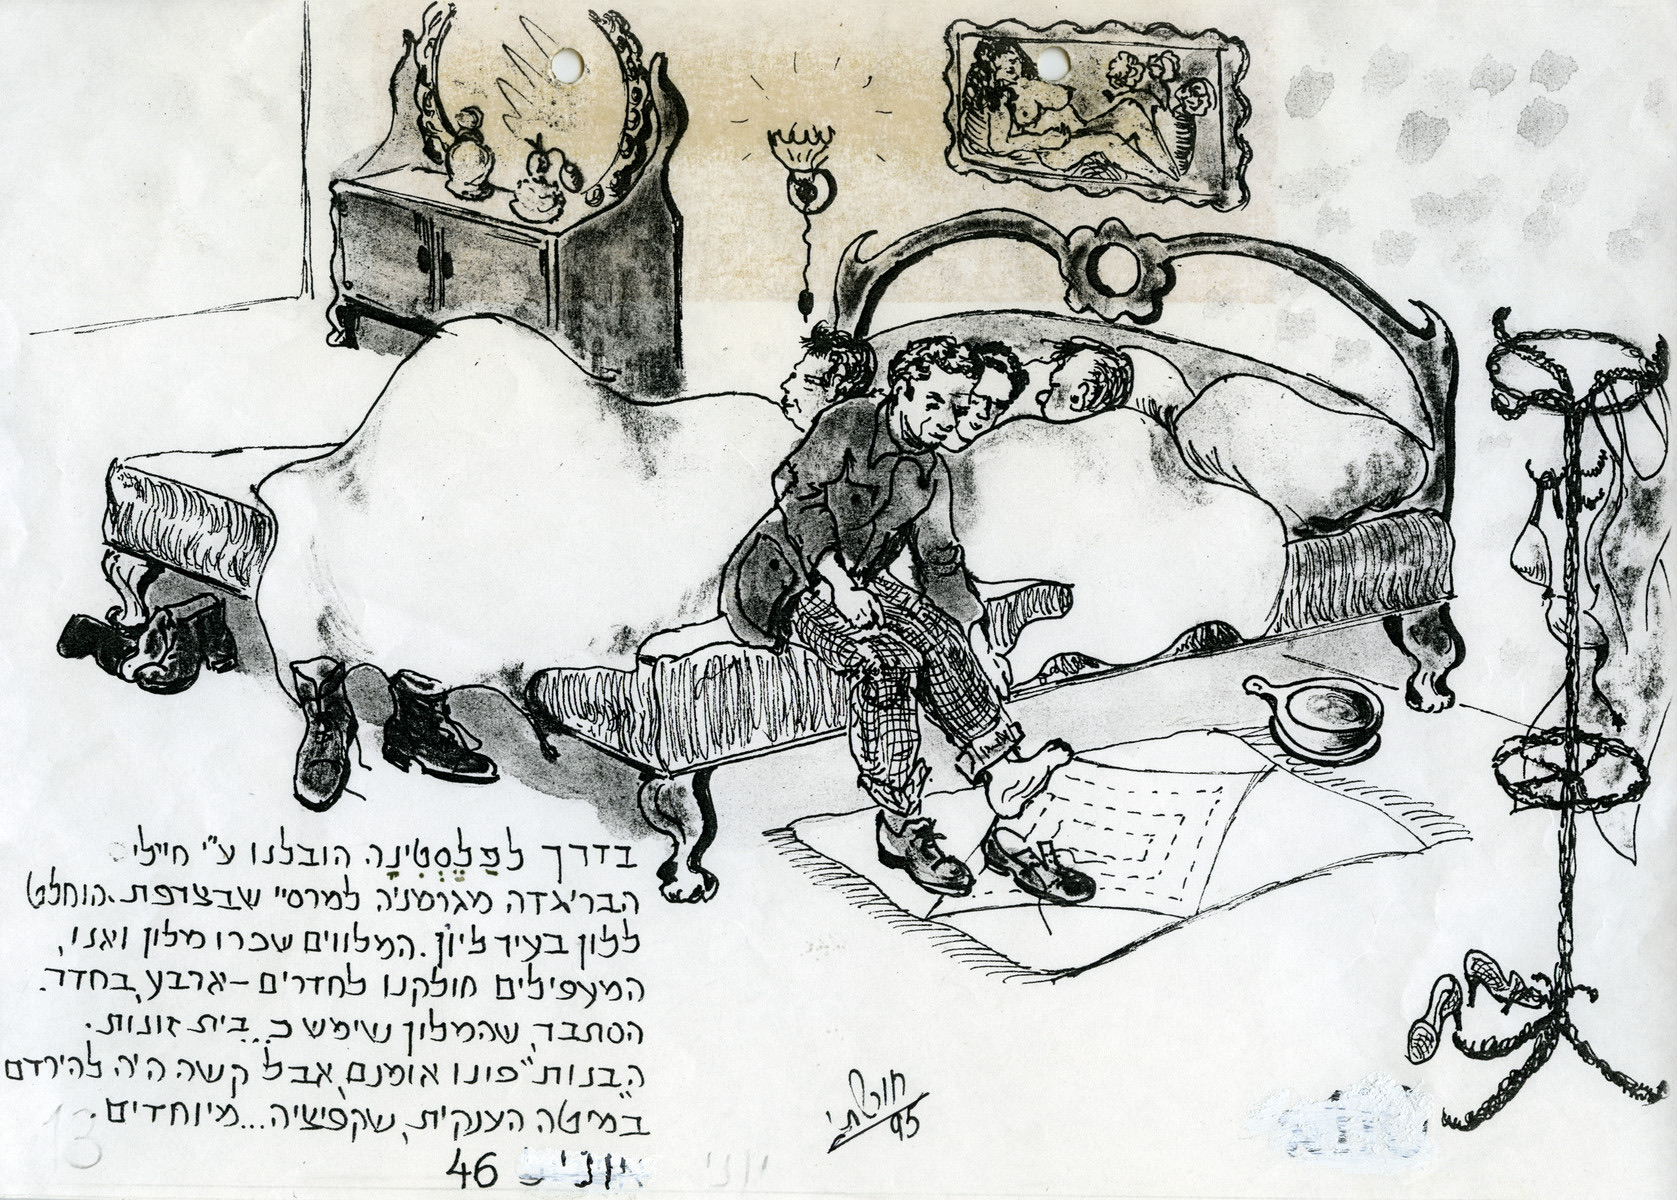 בדרך לפַלֶסְטִינָה הובלנו ע"י חיילי
הבריגדה מגרמניה למרסיי שבצרפת. הוחלט
ללון בעיר ליון. המלווים שכרו מלון ואנו,
המעפילים חולקנו לחדרים – ארבע בחדר.
הסתבר, שהמלון שימש כ... בית זונות.
ה"בנות" פונו אומנם, אבל קשה היה להירדם
במיטה הענקית, שקפיציה... מיוחדים.
יוני 46
95
13